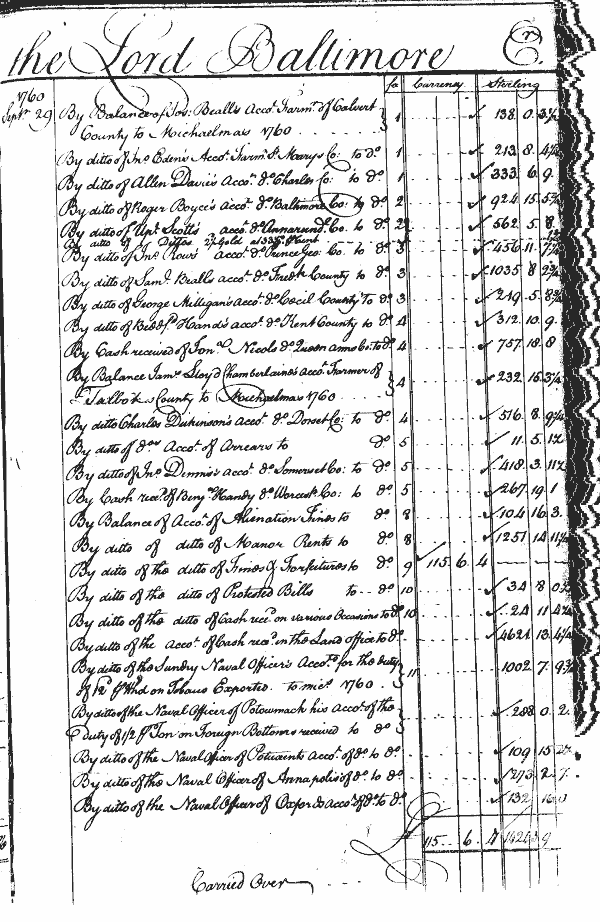 the Lord Baltimore Cr.
fo Currency Sterling
1760
Septr. 29 By Balance of Jos: Beall's Accot. Farmr. of Calvert
County to Michaelmas 1760 1 138. 0. 3½
By ditto of Jno. Eden's Accot. Farmr. St. Marys Co: to do. 1 213. 8. 4½
By ditto of Allen Davis's Accot. do. Charles Co: to do. 1 333. 6. 9.
By ditto of Roger Boyce's Accot. do. Baltimore Co: to do. 2 924. 15.
By ditto of Upn. Scott's accot. do. Annarund. Co. to do. 2 562. 5. 8
By ditto of Ditto
By ditto of Jno. Rows' Accot. do. Prince Geo: Co. to do. 3 456. 11.
By ditto of Saml. Bealls accot. do. Fredk. County to do. 3 1035. 8
By ditto of George Milligan's Accot. do. Cecil County To do. 3 219. 5.
By ditto of Bedd. Hands accot. do. Kent County to do. 4 312. 10. 9.
By Cash received of Jon. Nicols do. Queen anns Co: to do. 4 757. 18. 8
By Balance Jams. Lloyd Chamberlaine's accot. Farmer of
Talbot County to Michaelmas 1760 4 232. 15. 3¼
By ditto Charles Dickinson's Accot. do. Dorset Co: to do. 4 516. 8.
By ditto of dos. Accot. of Arrears to do 5 11. 5.
By ditto of Jno. Dennis's Accot. do. Somerset Co: to do. 5 418. 3.
By Cash recd. of Benj. Handy do. Worcestr. Co: to do. 5 267. 19. 1
By Balance of Accot. of Alienation Fines to do. 8 104. 16. 3.
By ditto of ditto of Manor Rents to do. 8 1251. 14.
By ditto of the ditto of Fines & Forfeitures to do. 9 115. 6. 4
By ditto of the ditto of Protested Bills to do. 10 34. 8
By ditto of the ditto of Cash recd. on various Occasions to do. 10 24. 11
By ditto of the accot. of Cash recd. in the Land office to do. 4621. 13.
By ditto of the Sundry Naval Officer's Accots. for the duty
of 12d. Hhd on Tobacco Exported to Mics. 1760 11 1002. 7.
By ditto of the Naval Officer of Potowmack his Accot. of the
duty of 1/2 Ton on Foreign Bottoms received to do 288. 0. 2.
By ditto of the Naval Officer of Patuxents Accot. of do. to do 109. 15
By ditto of the Naval Officer of Annapolis of do. to do. 293. 2. 7.
By ditto of the Naval Officer of Oxfords Accot. of do. to do. 132.
115. 6.
Carried Over